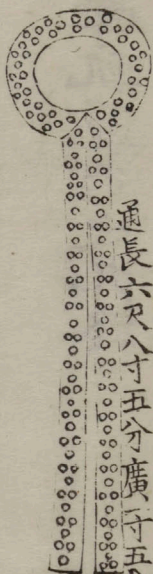 通長六尺八寸五分廣一寸五